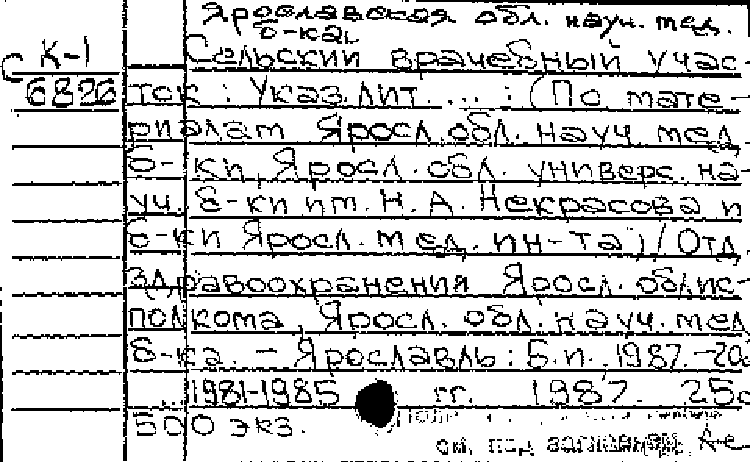 Ярославская обл. науч. мед.
б-ка.
К-1 Сельский врачебный учас-
С 6826 ток : Указ. лит. ... : (По мате-
риалам Яросл. обл. науч. мед.
б-ки, Яросл. обл. универс. на-
уч. б-ки им. Н. А. Некрасова и
б-ки Яросл. мед. ин-та) / Отд.
здравоохранения Яросл. облис-
полкома, Яросл. обл. науч. мед.
б-ка. – Ярославль : Б.и. 1987. –20с
1981-1985 гг. 1987. 25с
500 экз.
см. под